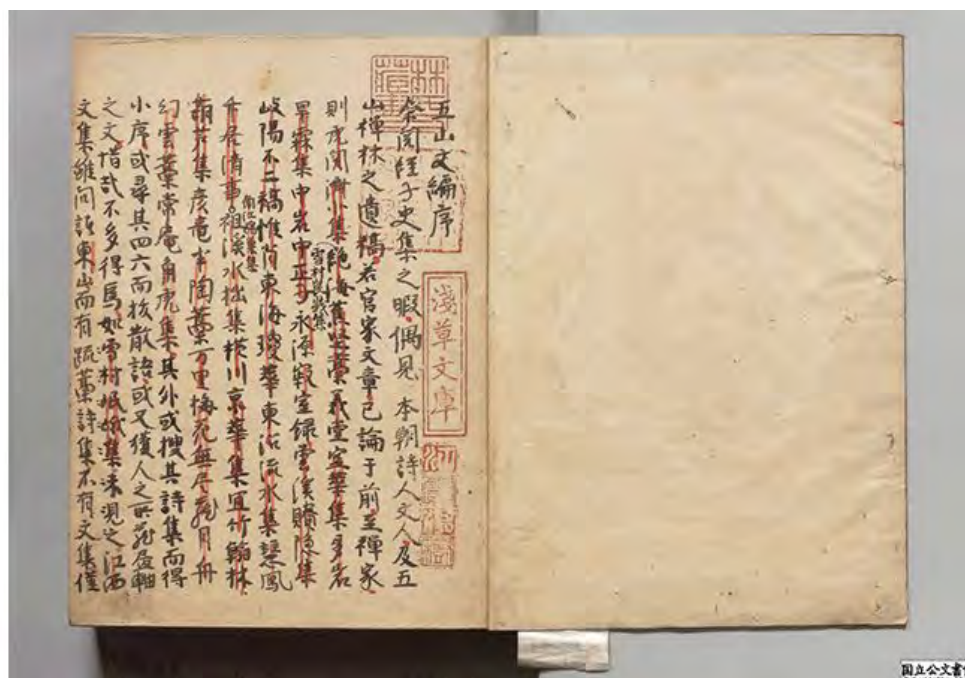 五山文編序
余閲経子史集之暇偶見 本朝詩人文人及五
山禅林之遺稿若官家文章已論于前至禅家
則虎関濟北集絶海蕉堅藁義堂空華集夢岩
旱霖集中岩中正子永源寂室録雲溪隠集
雪村岷峨集
岐陽不二稿惟肖東海璚華東沼流水集翠鳳
竹居清事祖溪水拙集横川京華集宜竹翰林
葫芦集彦竜半陶藁万里梅花無尽蔵月舟
幻雲藁常庵角虎集其外或捜其詩集而得
小序或尋其四六而抜散語或又獲人之所蔵巻軸
之文惜哉不多得焉如雪村岷峨集未現之江西
文集雖向訪東山而有疏藁詩集不有文集僅
林氏蔵書
淺草文庫
国立公文書